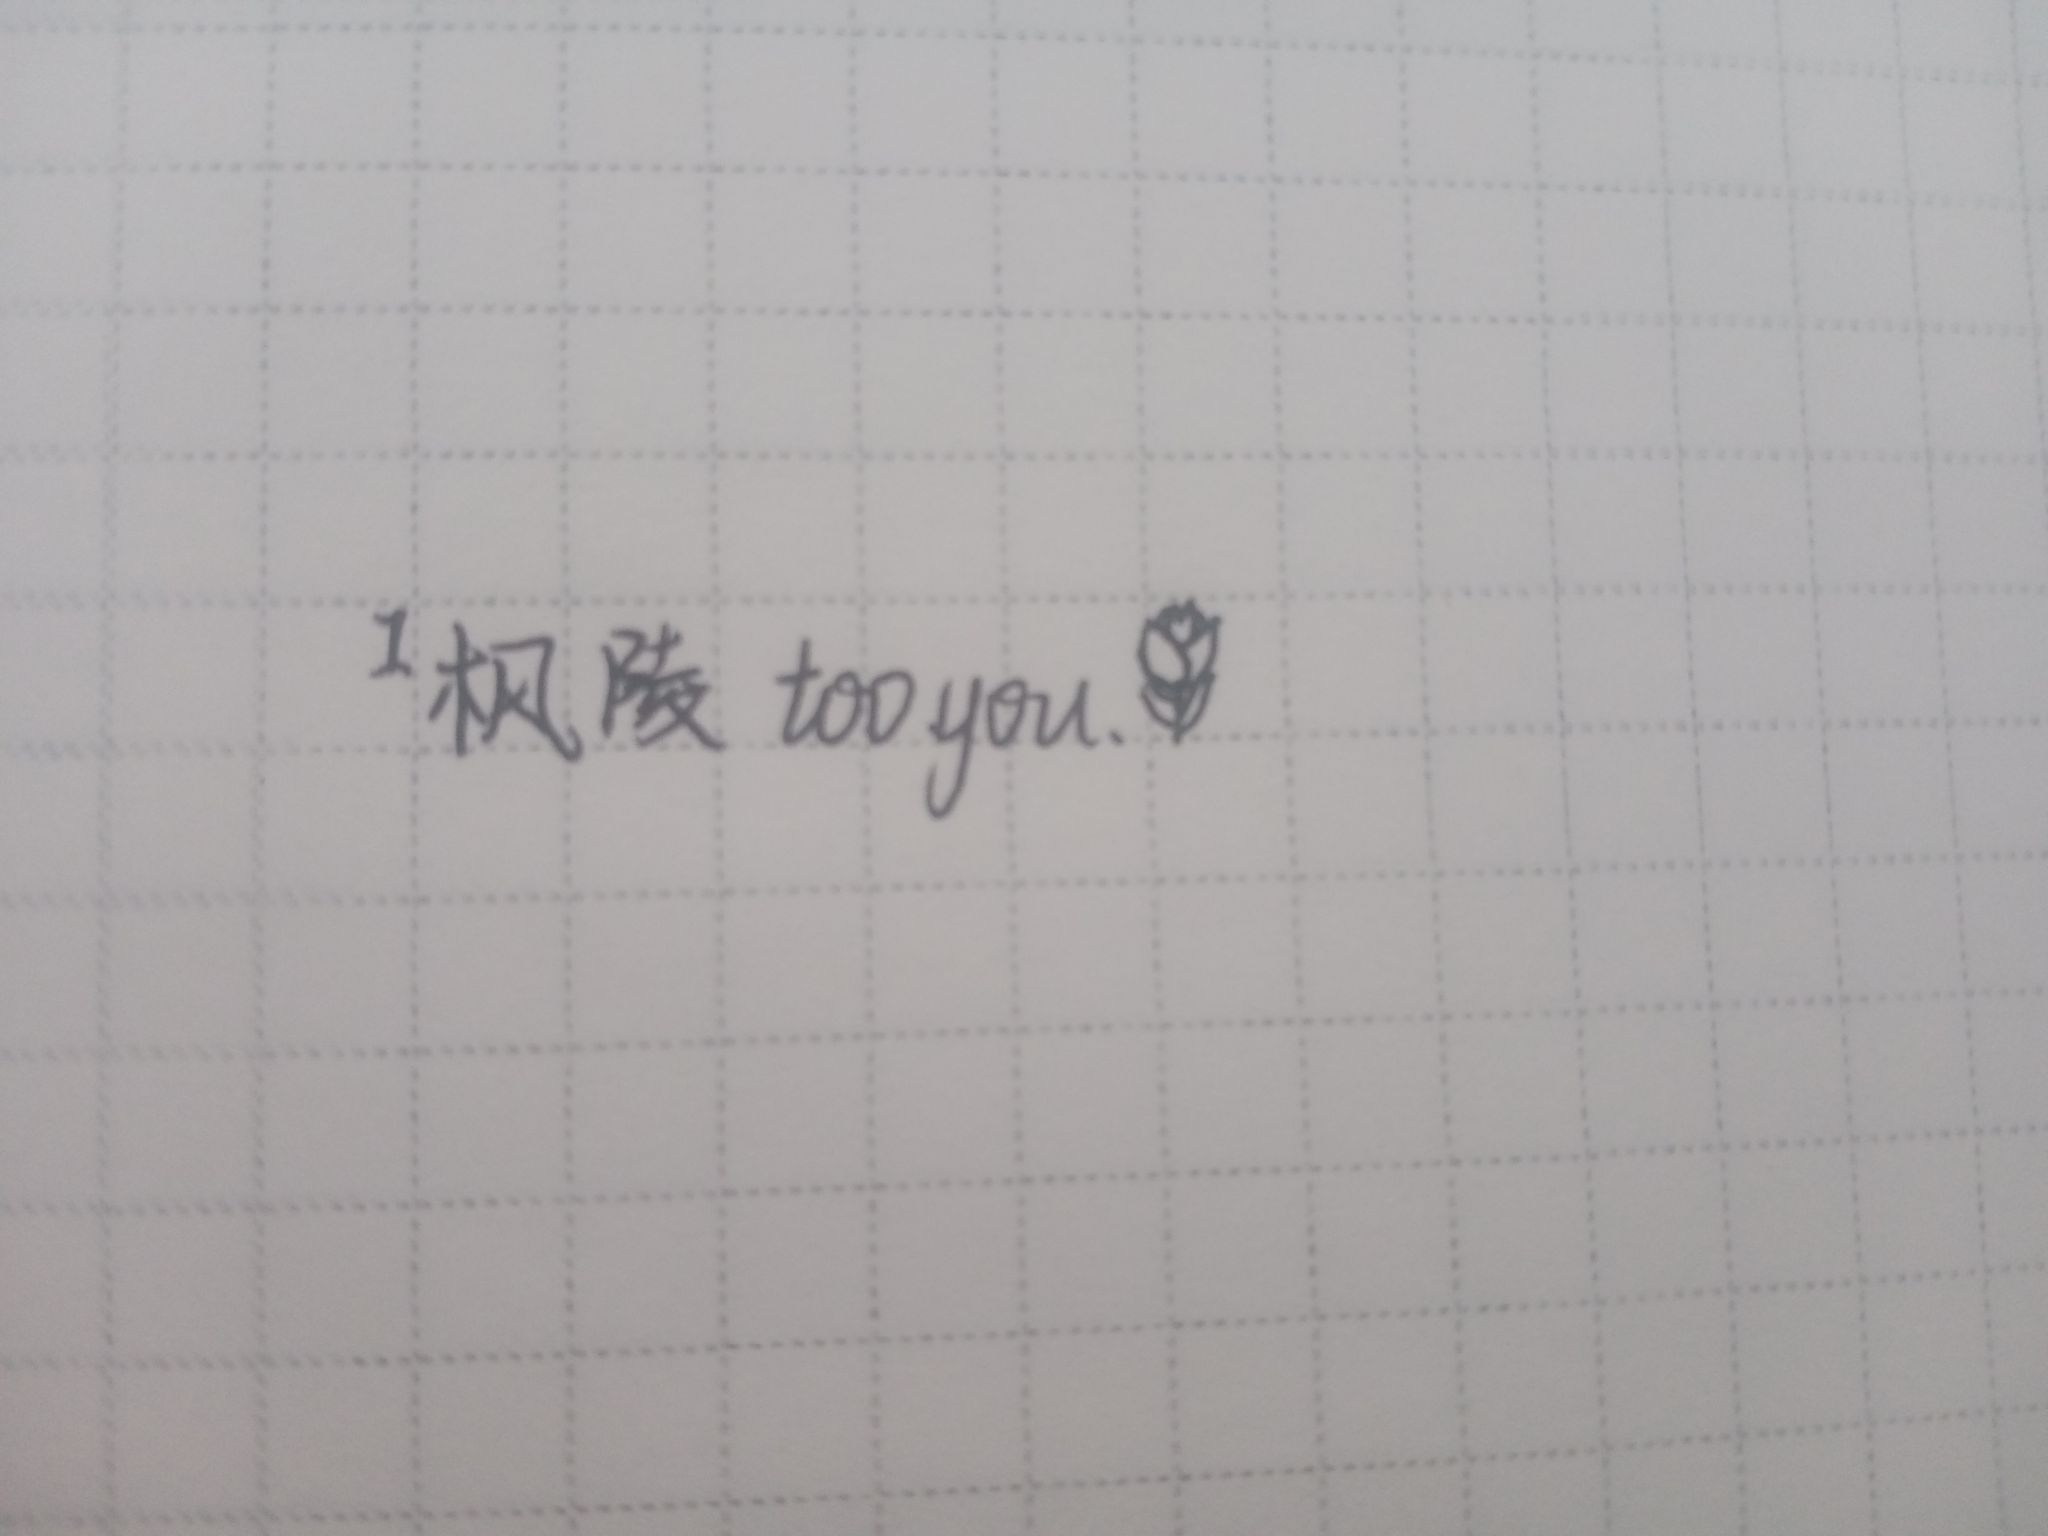 1枫陵 too you.